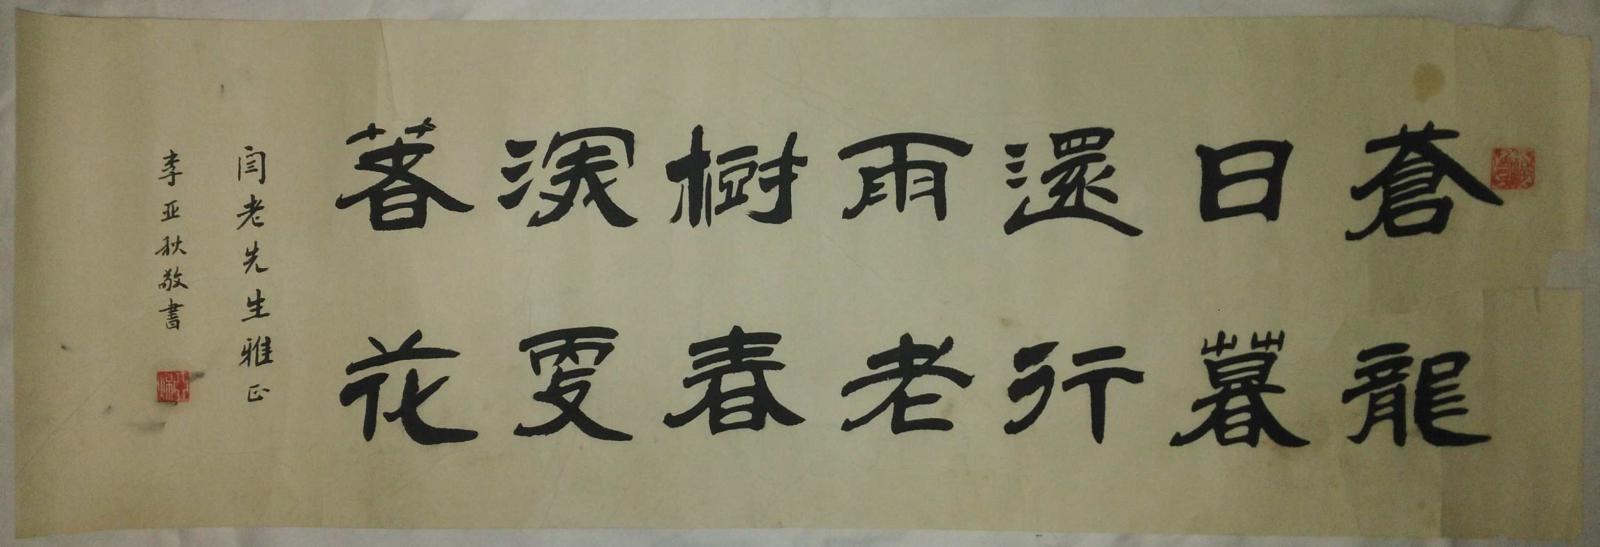 蒼龍
日暮
還行
雨老
樹春
深更
著花
闫老先生雅正
李亚秋敬書